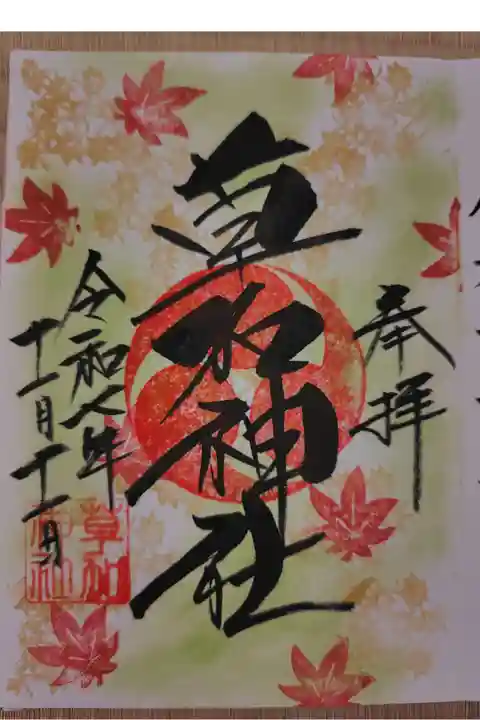 奉拝
草加神社
令和七年
十一月十一日
草加
神社